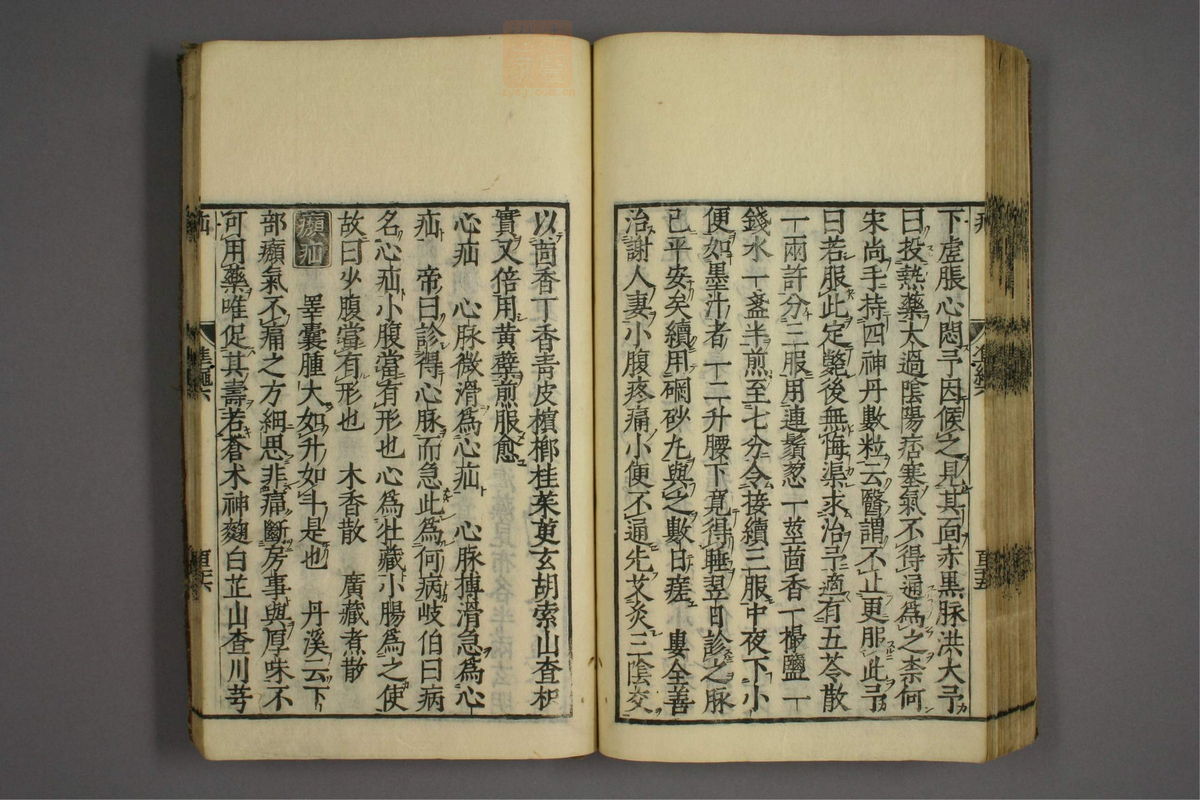 下虗脹心悶予因候之見其面赤黒脉洪大予
曰投熱藥太過陰陽痞塞氣不得通爲之柰何
宋尚手持四神丹數粒云醫謂不止更服此予
曰若服此定斃後無悔渠求治予適有五苓散
一兩許分三服用連鬚葱一莖茴香一撮鹽一
錢水一盞半煎至七分令接續三服中夜下小
便如墨汁者一二升腰下寛得睡翌日診之脉
已平安矣續用硇砂丸與之數日瘥　婁全善
治謝人妻小腹疼痛小便不通先艾灸三陰交
以茴香丁香青皮檳榔桂茱萸玄胡索山查枳
實又倍用黄蘗煎服愈
心疝　心脉微滑爲心疝　心脉搏滑急爲心
疝　帝曰診得心脉而急此爲何病岐伯曰病
名心疝小腹當有形也心爲牡藏小腸爲之使
故曰少腹當有形也　木香散　廣茂煮散
㿗疝　睪囊腫大如升如斗是也　丹溪云下
部㿗氣不痛之方細思非痛斷房事與厚味不
可用藥唯促其壽若蒼朮神麴白芷山查川芎
疝
疝